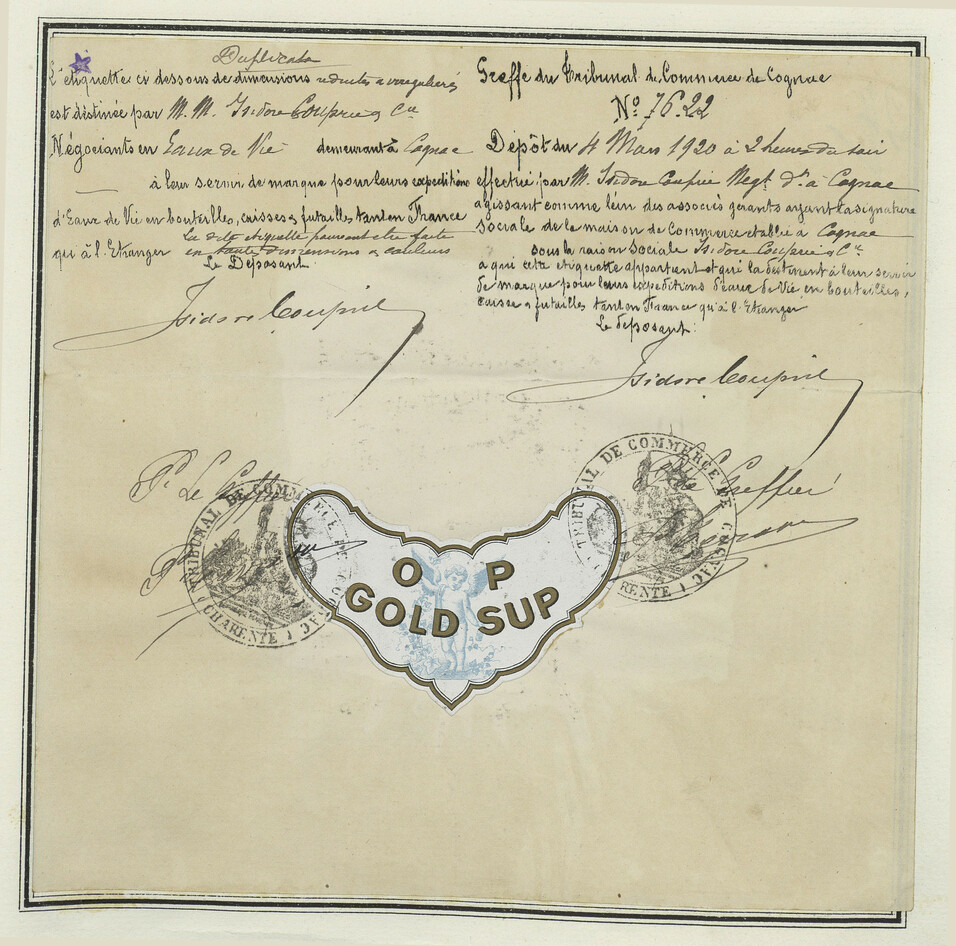 Duplicata
L'étiquette ci dessous de dimensions réduites & irrégulières
est destinée par M. M. Isidore Couprie & Cie
Négociants en Eaux de Vie demeurant à Cognac
à leur servir de marque pour leurs expéditions
d'Eaux de Vie en bouteilles, caisses & futailles tant en France
qui à l'Etranger La dite étiquette pouvant être faite
en toute dimensions & couleurs
Le Déposant
Isidore Couprie
Greffe du Tribunal de Commerce de Cognac
No 76.22
Dépôt du 4 Mars 1920 à 2 heures du soir
effectué par M. Isidore Couprie Negt dt à Cognac
agissant comme l'un des associés gérants ayant la signature
sociale de la maison de Commerce établie à Cognac
sous la raison sociale Isidore Couprie & Cie
a qui cette étiquette appartient et qui la destinent à leur servir
de marque pour leurs expéditions d'eaux de Vie en bouteilles,
caisses & futailles tant en France qu'à l'Etranger
Le déposant:
Isidore Couprie
P. Le Greffier
Greffier
TRIBUNAL DE COMMERCE DE COGNAC
(CHARENTE)
TRIBUNAL DE COMMERCE DE COGNAC
CHARENTE
O P
GOLD SUP